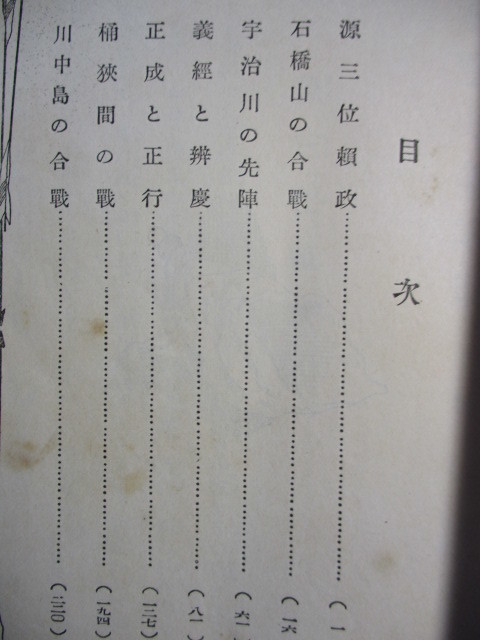 目次
源三位頼政……(一
石橋山の合戰……(一六
宇治川の先陣……(六一
義經と辨慶……(八一)
正成と正行……(一三七)
桶狹間の戰……(一九四)
川中島の合戰……(二三〇)